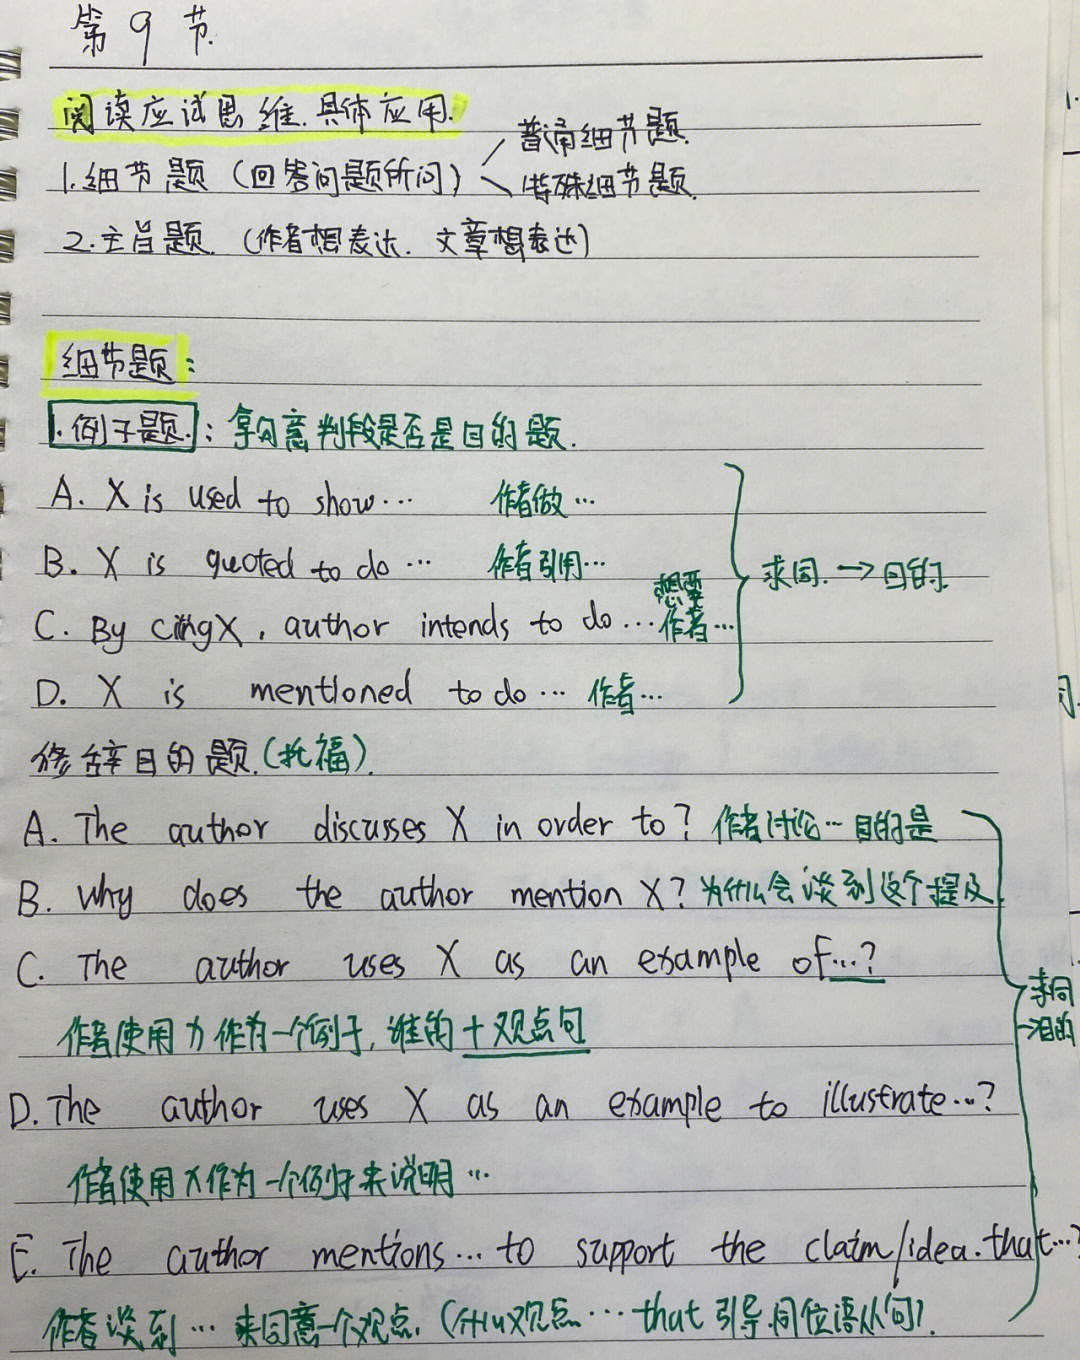 第9节.
阅读应试思维.具体应用.
普通细节题.
1.细节题(回答问题所问)
特殊细节题.
2.主旨题.(作者想表达.文章想表达)
细节题:
1.例子题.:拿句意判段是否是目的题.
A. X is used to show… 作者做…
B. X is quoted to do … 作者引用…
求同.→目的.
想要
C. By citingX, author intends to do …作者…
D. X is mentioned to do … 作者…
修辞目的题.(托福).
A. The author discusses X in order to? 作者讨论…目的是
B. Why does the author mention X? 为什么会谈到这个提及
C. The author uses X as an example of…?
求同
→目的
作者使用X作为一个例子,谁的+观点句
D. The author uses X as an example to illustrate…?
作者使用X作为一个例子来说明…
E. The author mentions…to support the claim/idea.that…?
作者谈到…来同意一个观点.(什么观点…that引导.同位语从句).